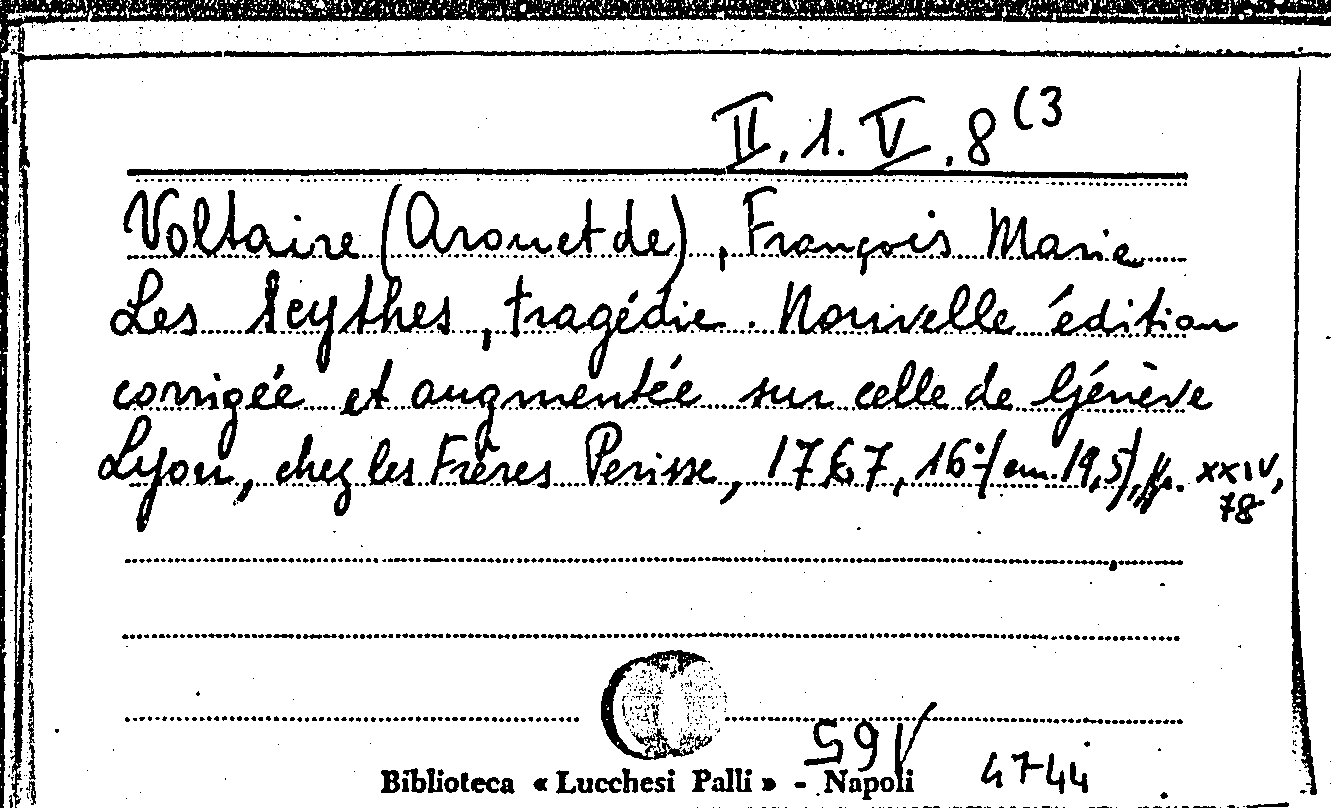 II.1.V.8(3
Voltaire (Arouet de), François Marie
Les Scythes, tragédie. Nouvelle édition
corrigée et augmentée sur celle de Génève
Lyon, chez les Frères Perisse, 1767, 16°(cm.19,5), pp. XXIV,
78
Biblioteca « Lucchesi Palli » - Napoli
4744